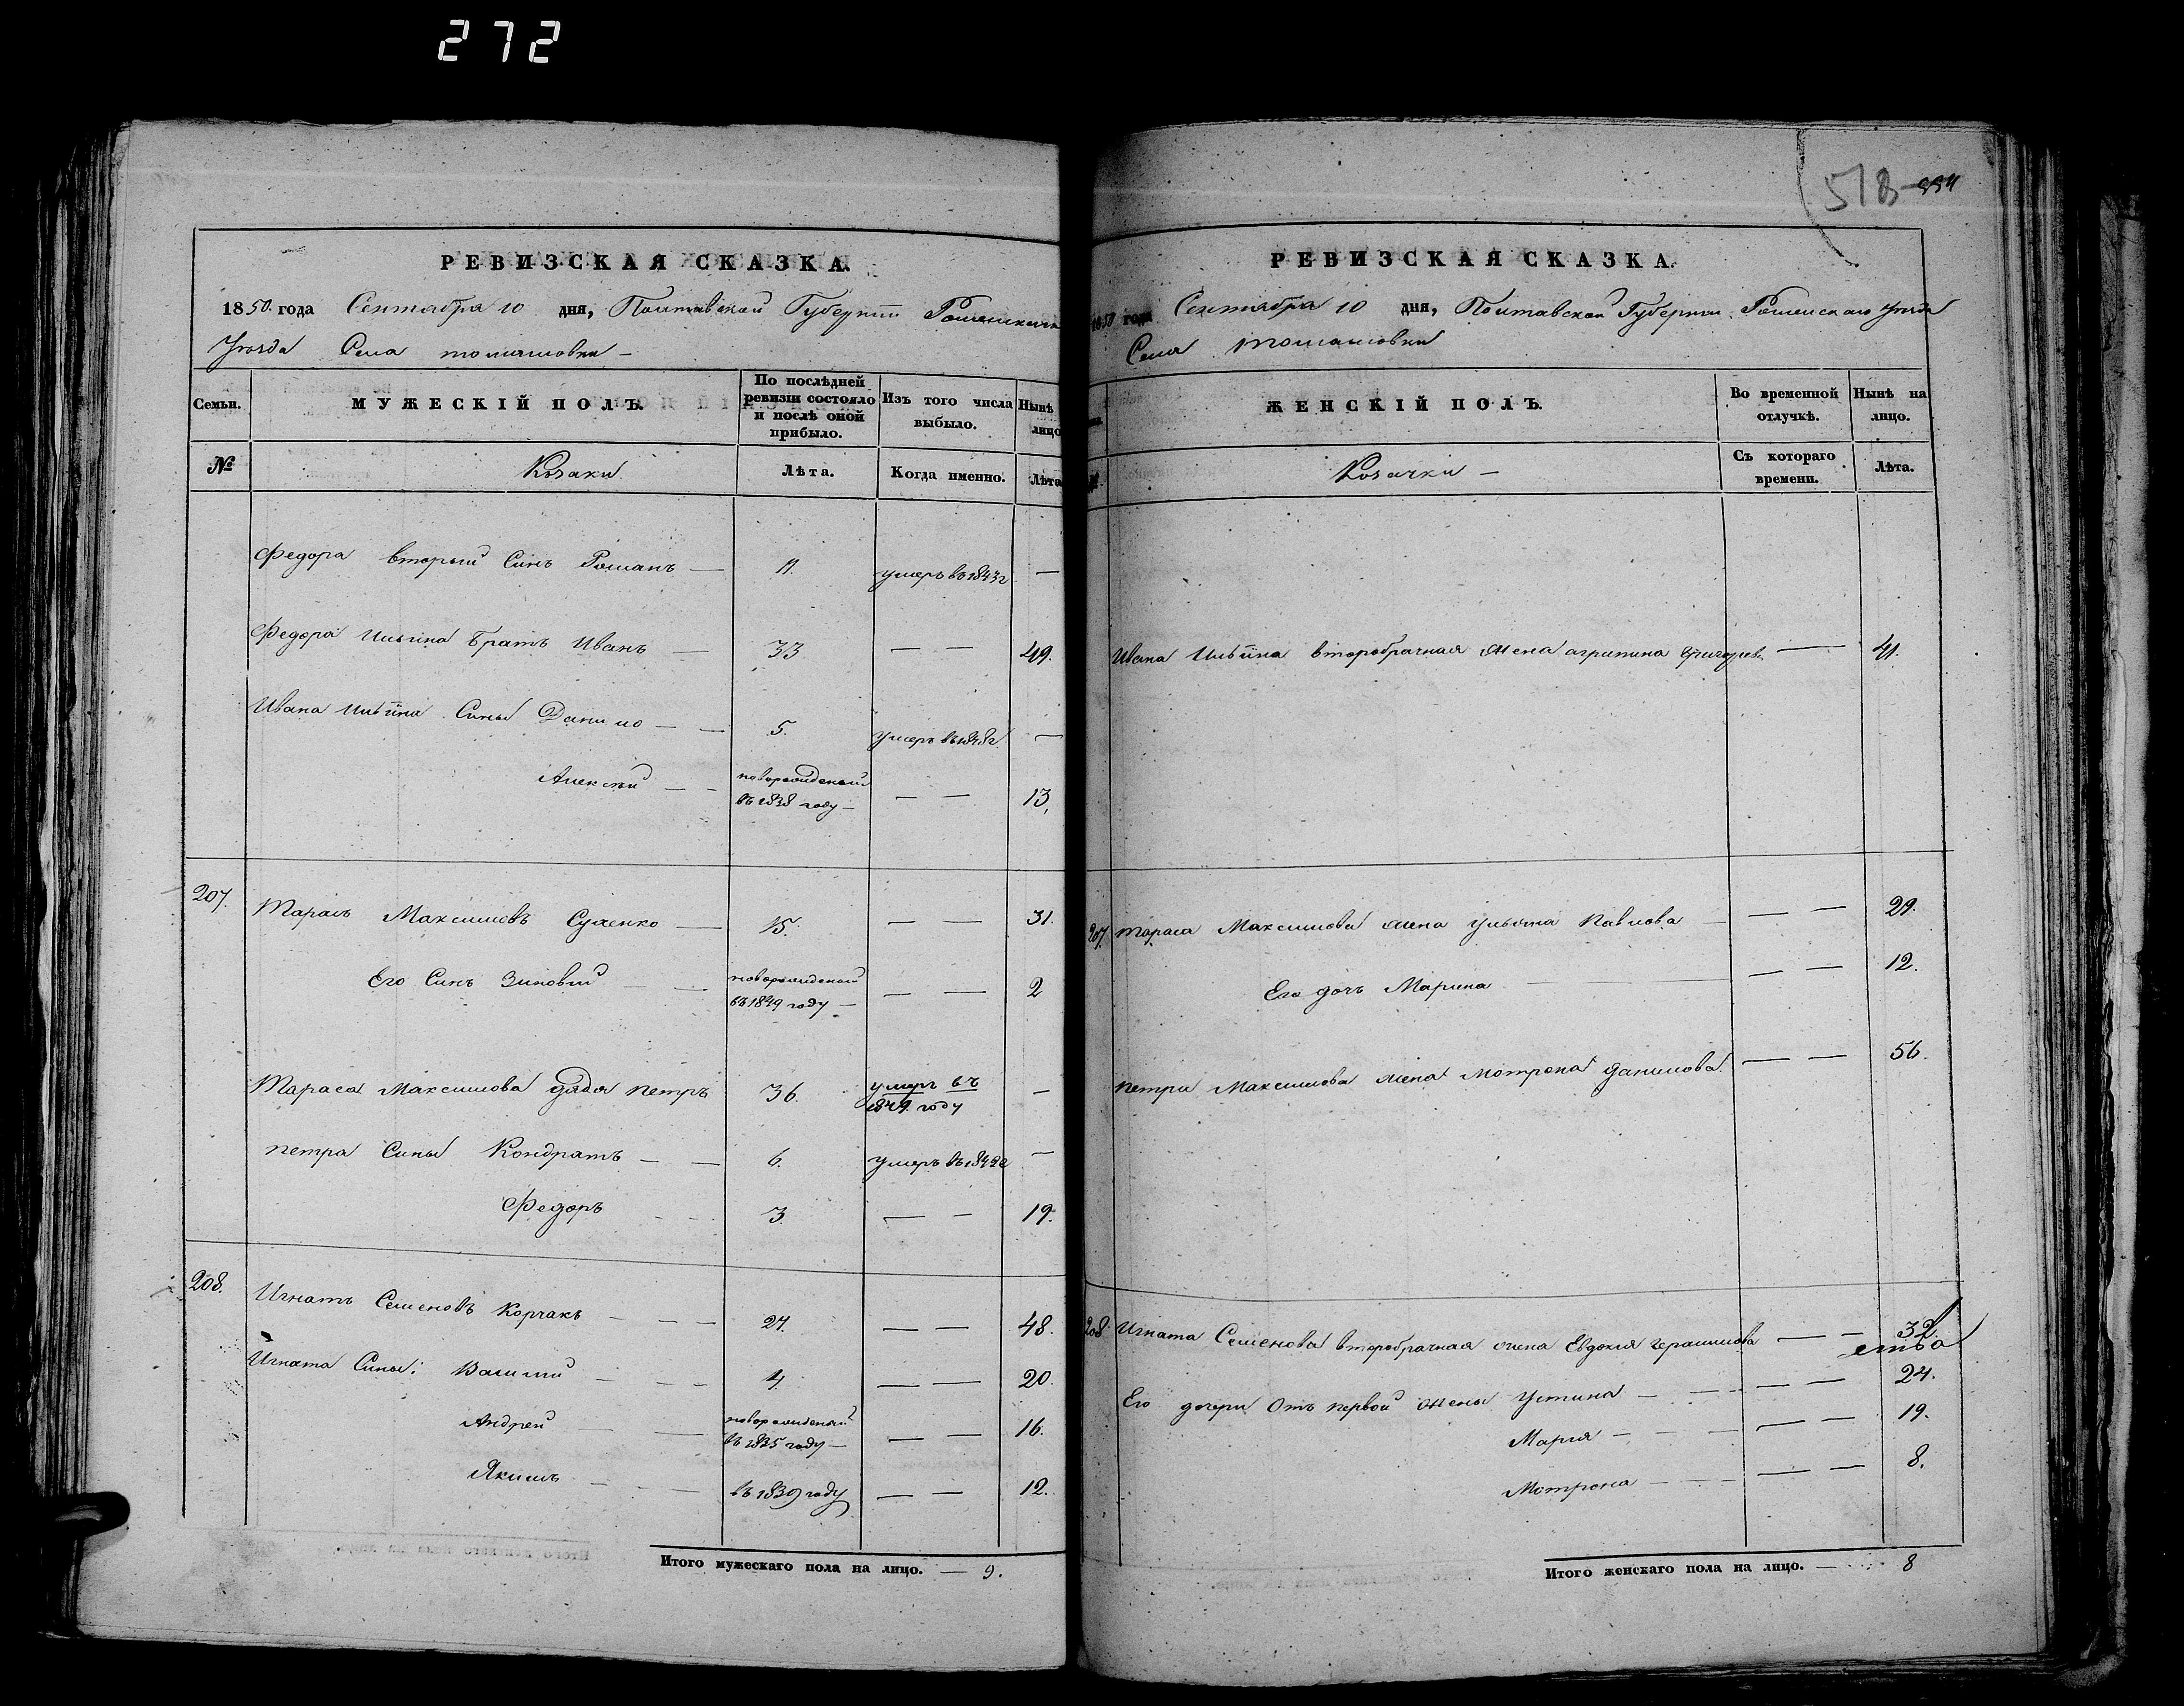 272
РЕВИЗСКАЯ СКАЗКА.
1850 года Сентября 10 дня, Полтавской Губернии Роменскаго
Уезда Села томашовки —
Семьи. МУЖЕСКІЙ ПОЛЪ. По послѣдней ревизіи состояло и послѣ оной прибыло. Изъ того числа выбыло. Нынѣ лицо
№ Козаки Лѣта. Когда именно. Лѣта
Федора вторый Синъ Романъ — 11. умеръ въ 1843г —
Федора Ильина братъ Иванъ — 33 — — 49.
Ивана Ильіина Сины Данило — — 5. умеръ в 1848г. —
Алексѣй — — новорожденой въ 1838 году — — — 13,
207. Тарасъ Максимовъ Суленко — 15. — — 31.
Его Синъ Зиновий — — новорожденой въ 1849 году — — — 2
Тараса Максимова дядя петръ 36. умеръ въ 1849 году —
петра Сины Кондратъ — — 6. умеръ въ 1842г —
Федоръ — — 3 — — 19.
208. Игнатъ Семеновъ Корчакъ — — — 27. — — 48.
Игната Сины: Василий — — — 4. — — 20.
Андрей — — новорожденый въ 1835 году — — — 16.
Якимъ — — — въ 1839 году — — 12.
Итого мужескаго пола на лицо. — 9.
518 554
РЕВИЗСКАЯ СКАЗКА.
1850 года Сентября 10 дня, Полтавской Губернии Роменскаго Уезда
Села томашовки
ЖЕНСКІЙ ПОЛЪ. Во временной отлучкѣ. Нынѣ на лицо.
Козачки — Съ котораго времени. Лѣта.
Ивана Ильіина второбрачная жена агрипина григорьев. — — 41.
207 тараса Максимова жена ульяна Павлова — — — 29.
Его дочъ Марина — — — 12.
петра Максимова жена мотрона данилова — — 56.
208 Игната Семенова второбрачная жена Евдокия герасимова — — 32.
Его дочери Отъ первой жены Устина — — — 24.
Мария — — — — 19.
Мотрона — — — — 8.
Итого женскаго пола на лицо. — 8